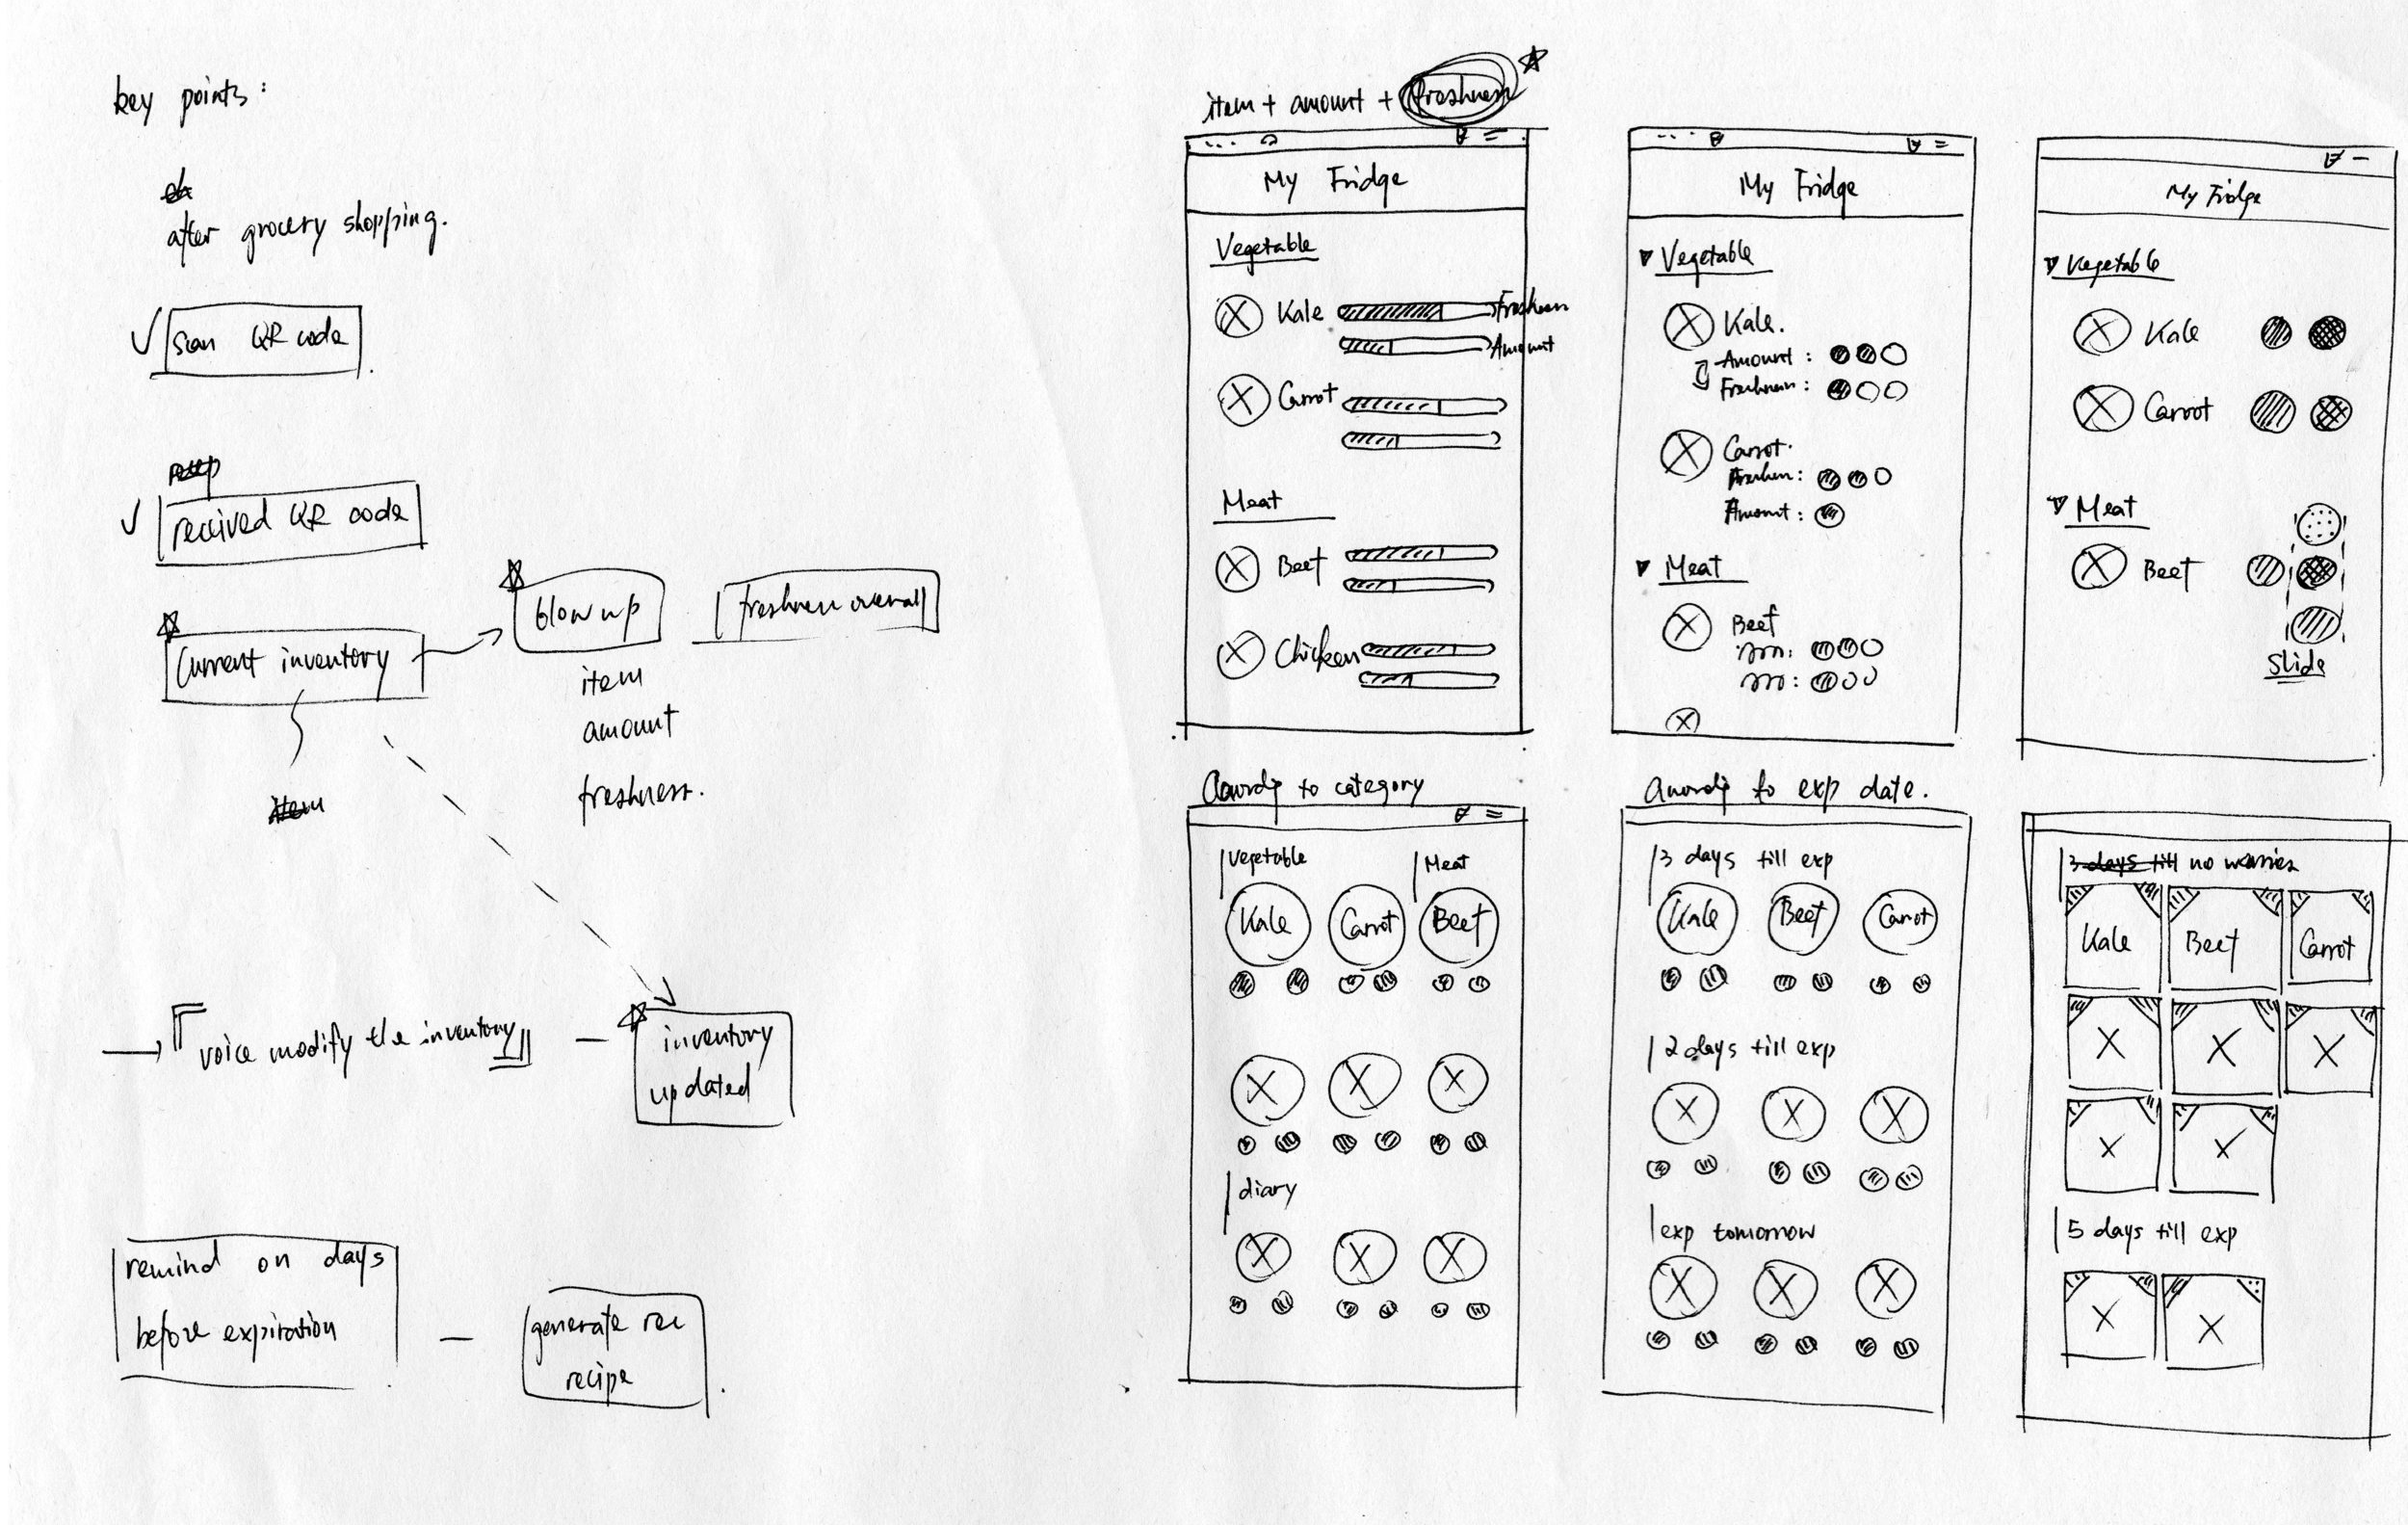 key points:
after grocery shopping.
scan QR code
received QR code
Current inventory
blow up
freshness overall
item
amount
freshness.
item
voice modify the inventory
inventory
updated
remind on days
before expiration
generate rec
recipe
item + amount + freshness
My Fridge
Vegetable
Kale
Freshness
Amount
Carrot
Meat
Beef
Chicken
My Fridge
Vegetable
Kale.
Amount:
Freshness:
Carrot.
Freshen:
Amount:
Meat
Beef
My Fridge
Vegetable
Kale
Carrot
Meat
Beef
Slide
to category
Vegetable Meat
Kale Carrot Beef
diary
to exp date.
3 days till exp
Kale Beef Carrot
2 days till exp
exp tomorrow
3 days till no worries
Kale Beef Carrot
5 days till exp